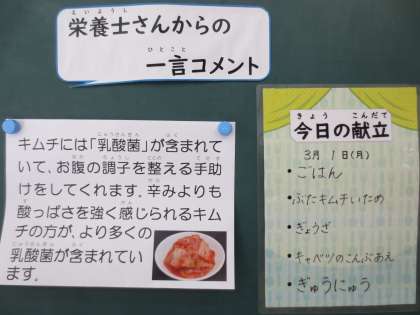 栄養士さんからの
一言コメント
キムチには「乳酸菌」が含まれて
いて、お腹の調子を整える手助
けをしてくれます。辛みよりも
酸っぱさを強く感じられるキム
チの方が、より多くの
乳酸菌が含まれてい
ます。
今日の献立
3月1日(月)
・ごはん
・ぶたキムチいため
・ぎょうざ
・キャベツのこんぶあえ
・ぎゅうにゅう